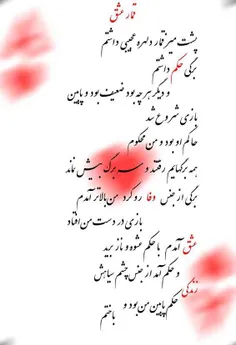 قمار عشق
پشت میز قمار دلهره عجیبی داشتم
برگی حکم داشتم
و دیگر هر چه بود ضعیف بود و پایین
بازی شروع شد
حاکم او بود و من محکوم
همه برگهایم رفتند و سه برگ بیش نماند
برگی از جنس وفا رو کرد من بالاتر آمدم
بازی در دست من افتاد
عشق آمدم با حکم عشوه و ناز برید
و حکم آمد از جنس چشم سیاهش
زندگی حکم پایین من بود و
باختم